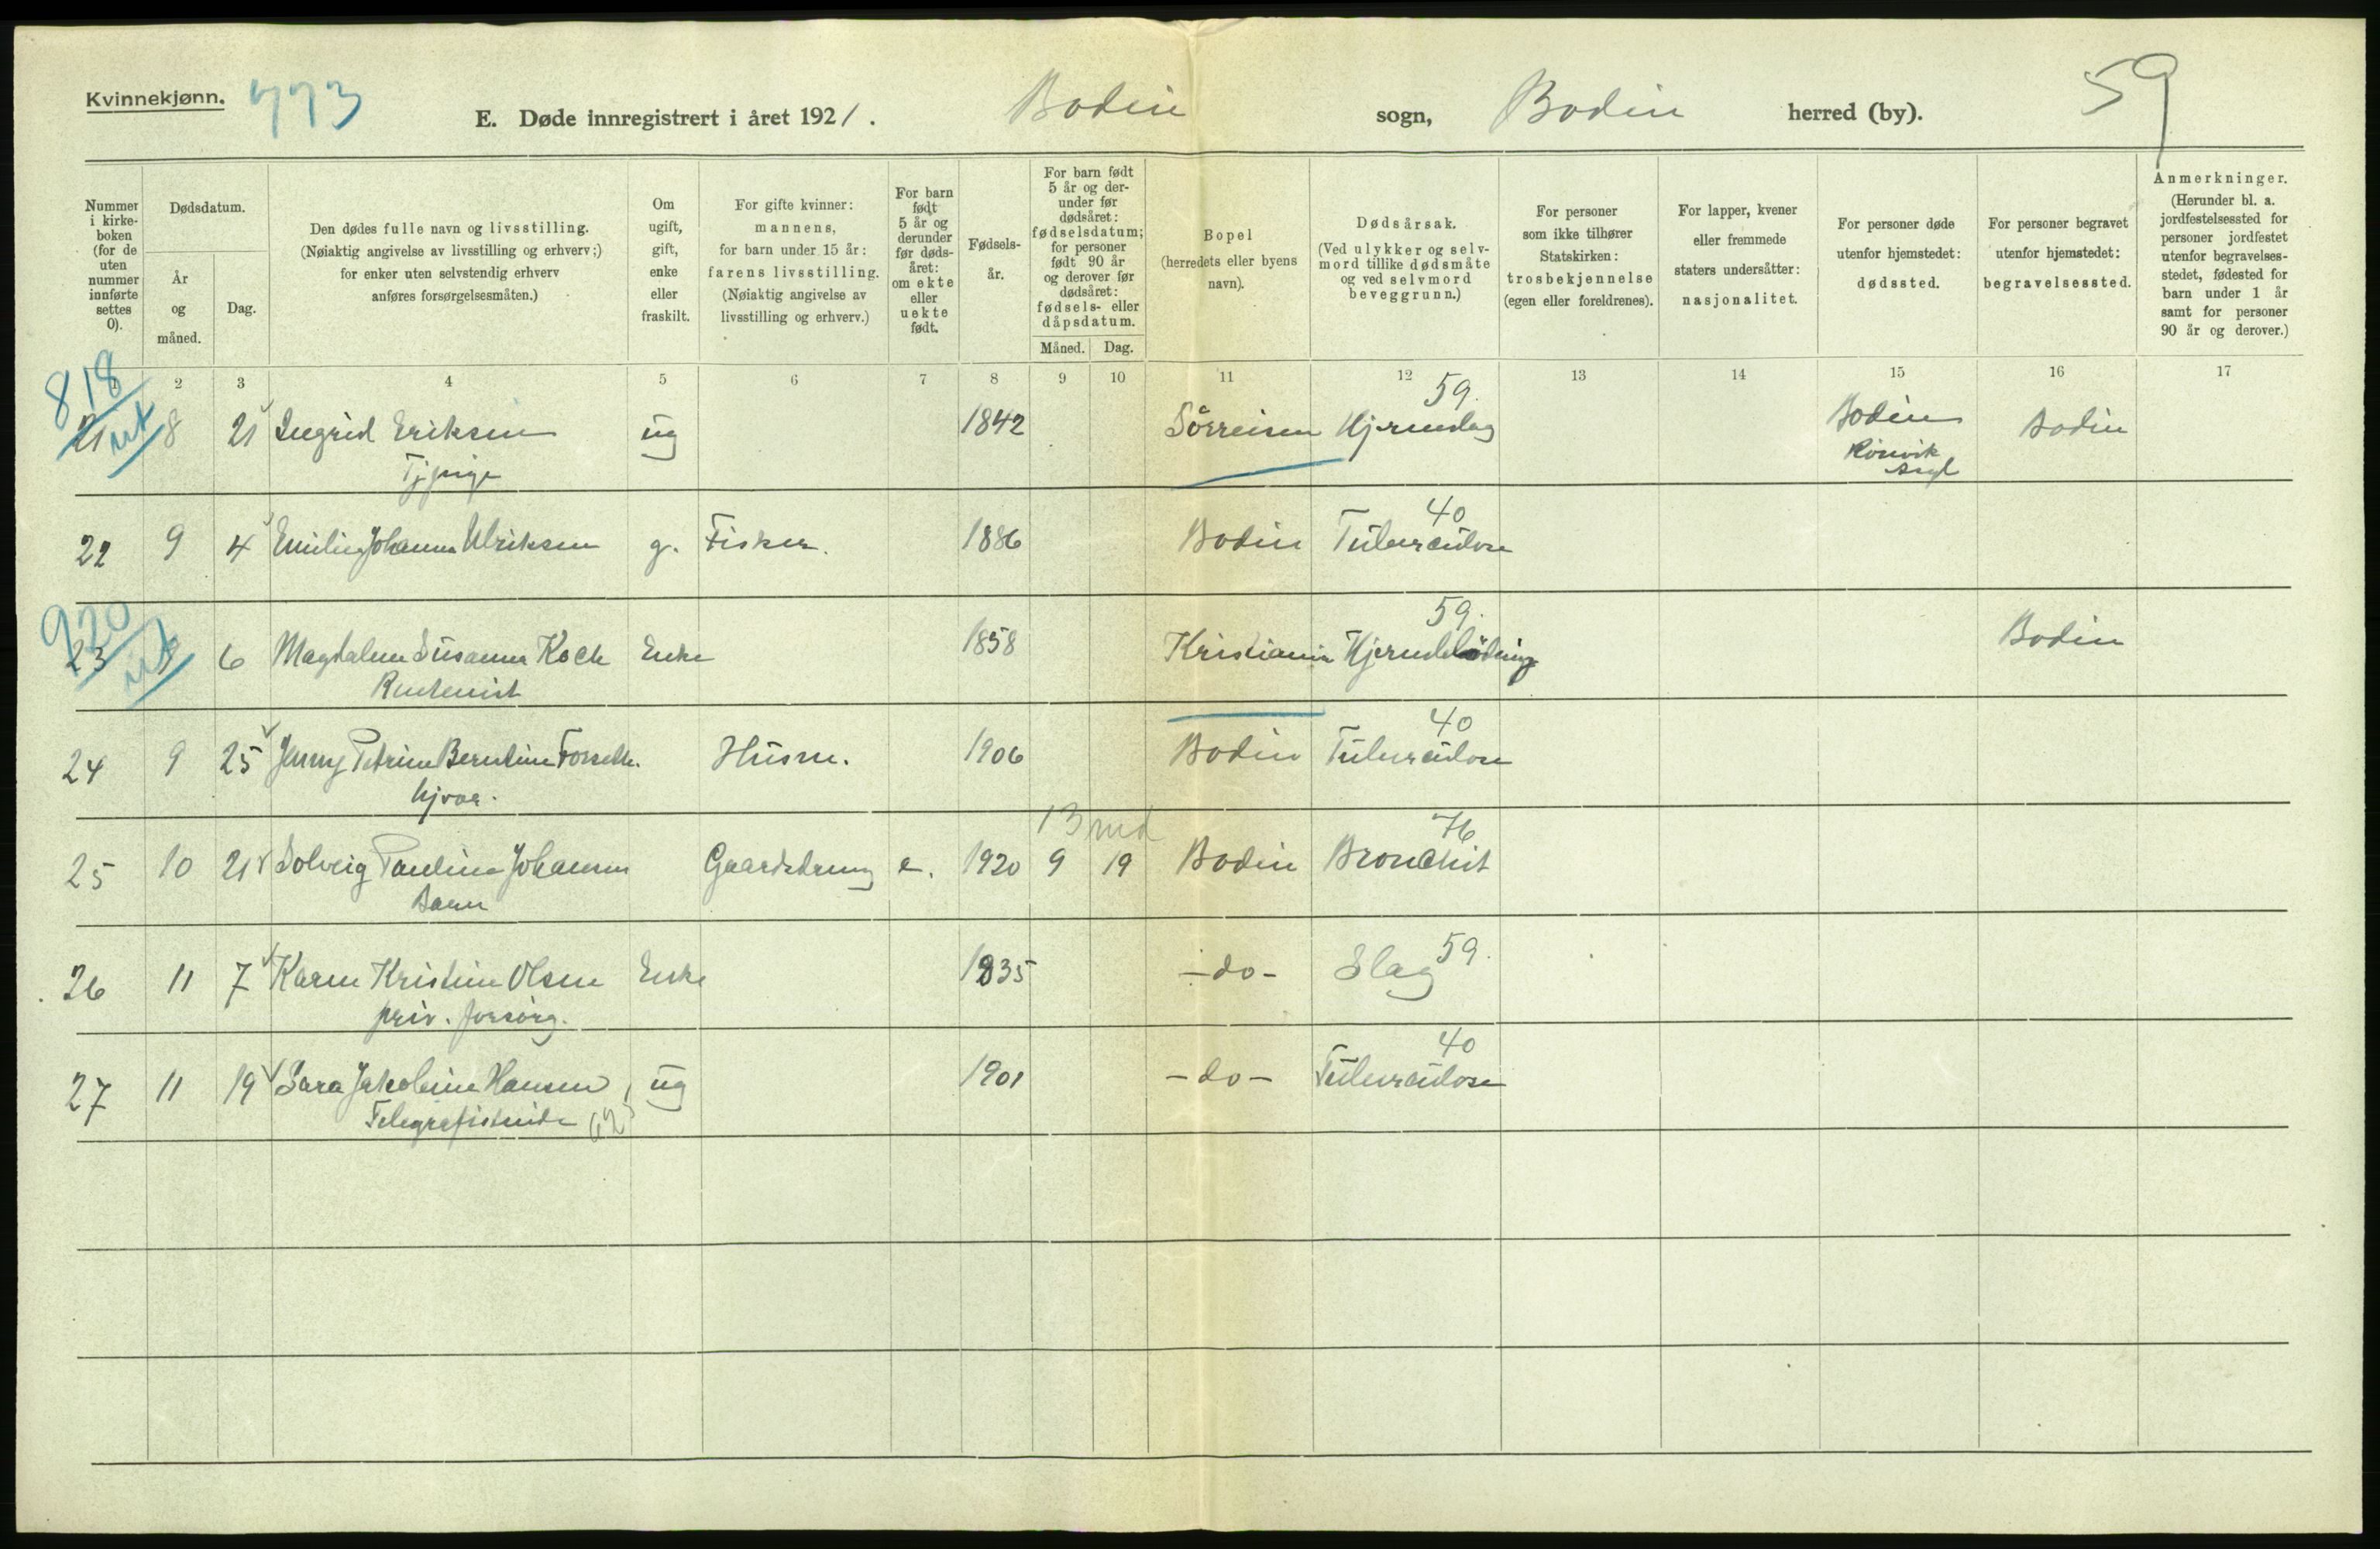 Kvinnekjønn.
773
E. Døde innregistrert i året 1921.
Bodin sogn, Bodin herred (by).
59
Nummer i kirkeboken (for de uten nummer innførte settes 0).
Dødsdatum.
År og måned.
Dag.
Den dødes fulle navn og livsstilling.
(Nøiaktig angivelse av livsstilling og erhverv;)
for enker uten selvstendig erhverv
anføres forsørgelsesmåten.)
Om ugift, gift, enke eller fraskilt.
For gifte kvinner:
mannens,
for barn under 15 år:
farens livsstilling.
(Nøiaktig angivelse av
livsstilling og erhverv.)
For barn født 5 år og derunder før dødsåret: om ekte eller uekte født.
Fødselsår.
For barn født 5 år og derunder før dødsåret: fødselsdatum; for personer født 90 år og derover før dødsåret: fødsels- eller dåpsdatum.
Måned. Dag.
Bopel
(herredets eller byens
navn).
Dødsårsak.
(Ved ulykker og selvmord tillike dødsmåte og ved selvmord beveggrunn.)
For personer
som ikke tilhører
Statskirken:
trosbekjennelse
(egen eller foreldrenes).
For lapper, kvener
eller fremmede
staters undersåtter:
nasjonalitet.
For personer døde
utenfor hjemstedet:
dødssted.
For personer begravet
utenfor hjemstedet:
begravelsessted.
Anmerkninger.
(Herunder bl. a. jordfestelsessted for personer jordfestet utenfor begravelsesstedet, fødested for barn under 1 år samt for personer 90 år og derover.)
1 2 3 4 5 6 7 8 9 10 11 12 13 14 15 16 17
818
59.
21 8 21 Ingrid Eriksen ug 1842 Sörreisen Hjerneslag Bodin Bodin
ut
Tj.pige
Rönvik
Asyl
40
22 9 4 Emilie Johanna Ulriksen g. Fisker. 1886 Bodin Tuberculose
920
59.
23 6 Magdalena Susanna Koch Enke 1858 Kristiania Hjerneblödning Bodin
ut
Rentenist
40
24 9 25 Jenny Petrine Berntine 1906 Husm. Bodin Tuberculose
hjvær.
13 md
76
25 10 21 Solveig Pauline Johansen Gaardsdreng e. 1920 9 19 Bodin Bronchit
Barn
59.
26 11 7 Karen Kristine Olsen Enke 1835 -do- Slag
priv. forsörg.
40
27 11 19 Sara Jakobine Hansen ug 1901 -do- Tuberculose
Telegrafistinde